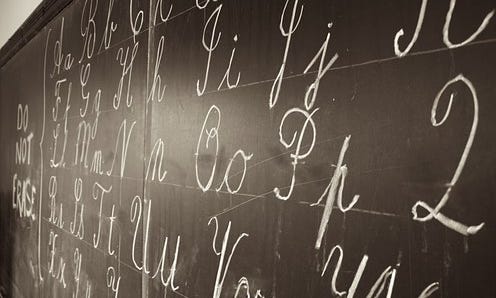 DO
NOT
ERASE
Aa Bb
Ff Gg Hh Ii Jj K
Ll Mm Nn Oo Pp Q
Rr Ss Tt Uu Vv
Xx Yy